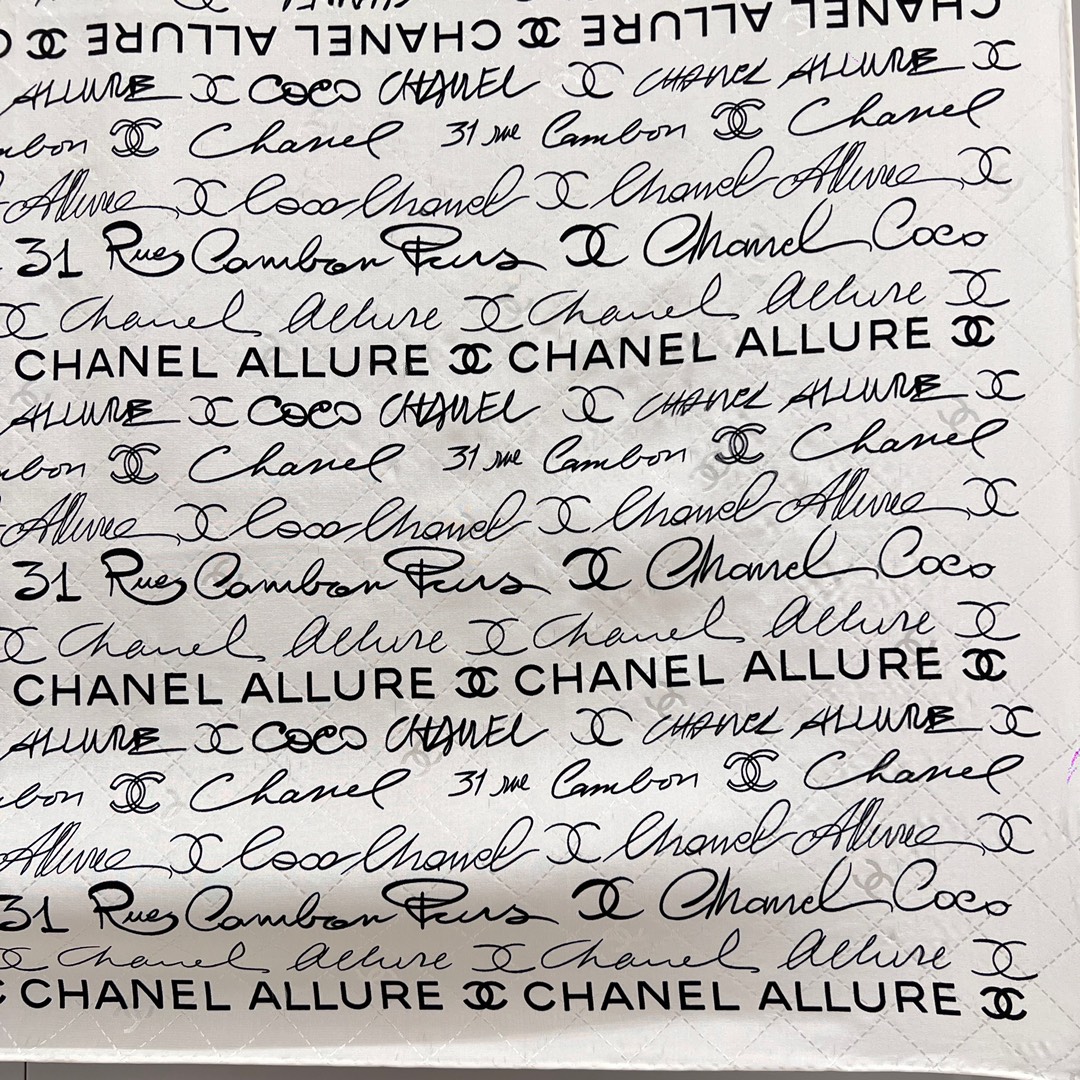 CHANEL ALLURE CHANEL ALLURE
ALLURE COCO CHANEL CHANEL ALLURE
mbon Chanel 31 rue Cambon Chanel
Allure Coco Chanel Chanel Allure
31 Rues Cambon Paris Chanel Coco
Chanel Allure Chanel Allure
CHANEL ALLURE CHANEL ALLURE
ALLURE COCO CHANEL CHANEL ALLURE
mbon Chanel 31 rue Cambon Chanel
Allure Coco Chanel Chanel Allure
31 Rues Cambon Paris Chanel Coco
Chanel Allure Chanel Allure
CHANEL ALLURE CHANEL ALLURE
ALLURE COCO CHANEL CHANEL ALLURE
mbon Chanel 31 rue Cambon Chanel
Allure Coco Chanel Chanel Allure
31 Rues Cambon Paris Chanel Coco
Chanel Allure Chanel Allure
CHANEL ALLURE CHANEL ALLURE